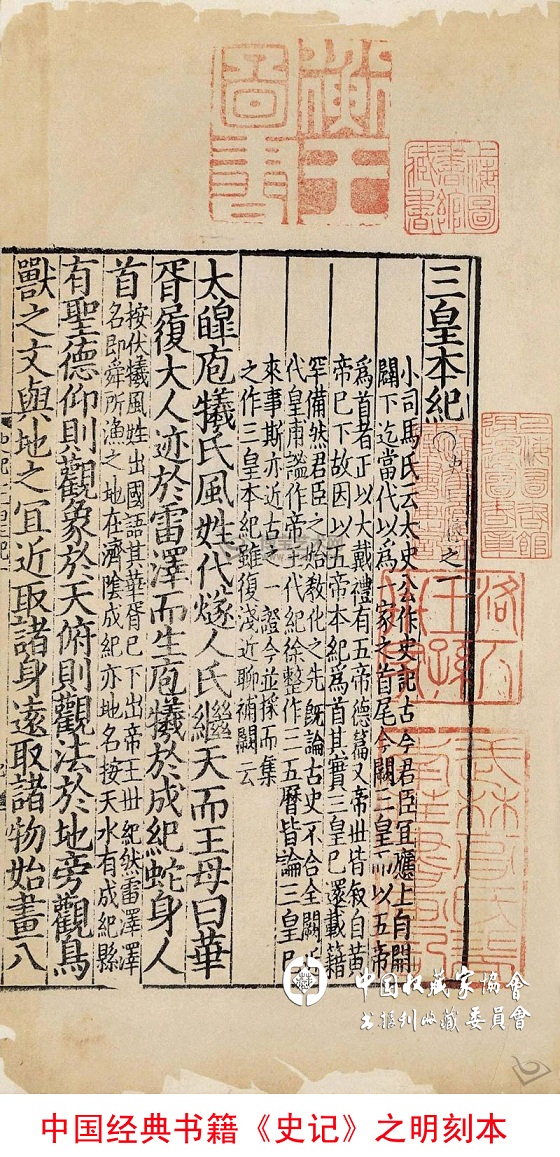 三皇本紀
小司馬氏云太史公作史記古今君臣宜應上自開
闢下迄當代以爲一家之首尾今闕三皇而以五帝
爲首者正以大戴禮有五帝德篇又帝世皆叙自黃
帝已下故因以五帝本紀爲首其實三皇已還載籍
罕備然君臣之始教化之先旣論古史不合全闕
代皇甫謐作帝王代紀徐整作三五曆皆論三皇已
來事斯亦近古之一證今並採而集
之作三皇本紀雖復淺近聊補闕云
太皥庖犧氏風姓代燧人氏繼天而王母曰華
胥履大人迹於雷澤而生庖犧於成紀蛇身人
首
按伏犧風姓出國語其華胥已下出帝王世紀然雷澤澤
名即舜所漁之地在濟陰成紀亦地名按天水有成紀縣
有聖德仰則觀象於天俯則觀法於地旁觀鳥
獸之文與地之宜近取諸身遠取諸物始畫八
圖書
上海圖書館藏書
洛下
王孫
中国收藏家協會
书报刊收藏委員會
中国经典书籍《史记》之明刻本